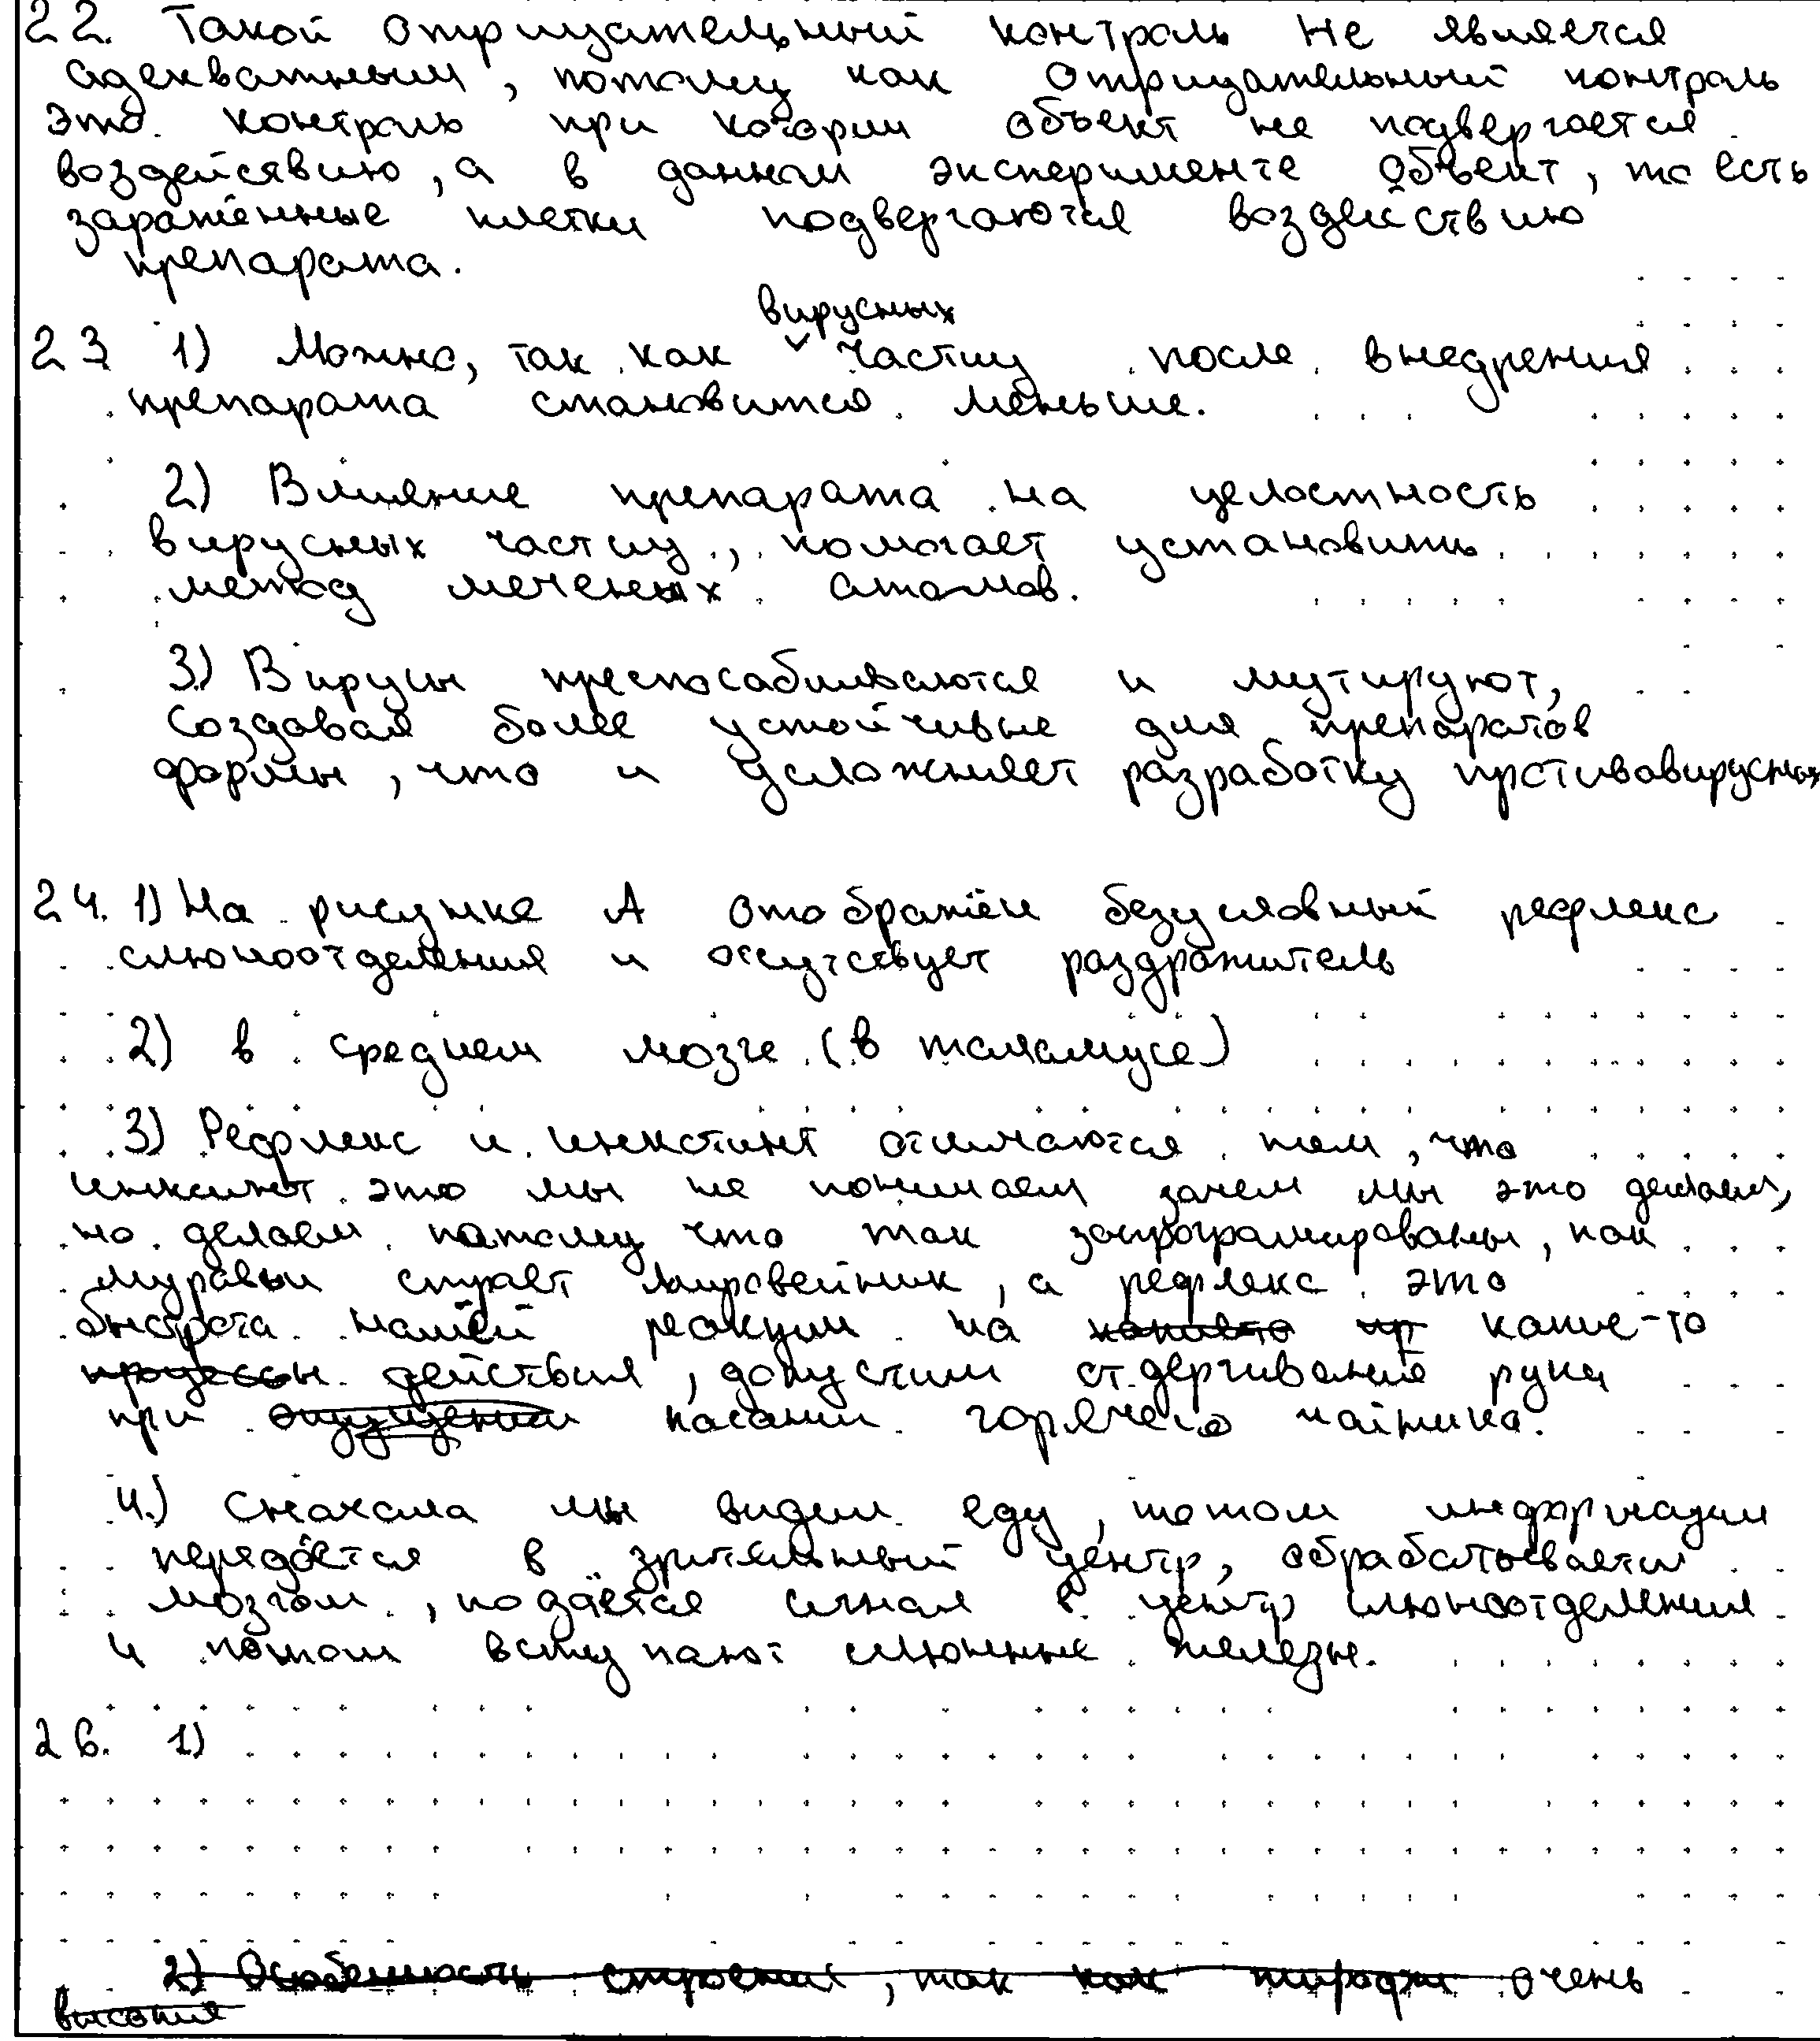 22. Такой отрицательный контроль не является
адекватным, потому как отрицательный контроль
это контроль при котором объект не подвергается
воздействию, а в данном эксперименте объект, то есть
заражённые клетки подвергаются воздействию
препарата.
вирусных
23 1) Можно, так как частиц после внедрения
препарата становится меньше.
2) Влияние препарата на целостность
вирусных частиц, помогает установить
метод меченых атомов.
3) Вирусы преспосабливаются и мутируют,
создавая более устойчивые для препаратов
формы, что и усложняет разработку противовирусных
24. 1) На рисунке А отображён безусловный рефлекс
слюноотделения и отсутствует раздражитель
2) в среднем мозге (в таламусе)
3) Рефлекс и инкстинкт отличаются тем, что
это мы не понимаем зачем мы это делаем,
но делаем потому что так запрограмированы, как
муравьи строят муровейник, а рефлекс это
быстрота нашей реакции на какие-то
действия, допустим отдергивание руки
при касании горячего чайника.
4.) Сначала мы видим еду, потом информация
передаётся в зрительный центр, обрабатывается
мозгом, подаётся сигнал в центр слюноотделения
и потом вступают слюнные железы.
26. 1)
2) Особенность строения, так как очень
высокие